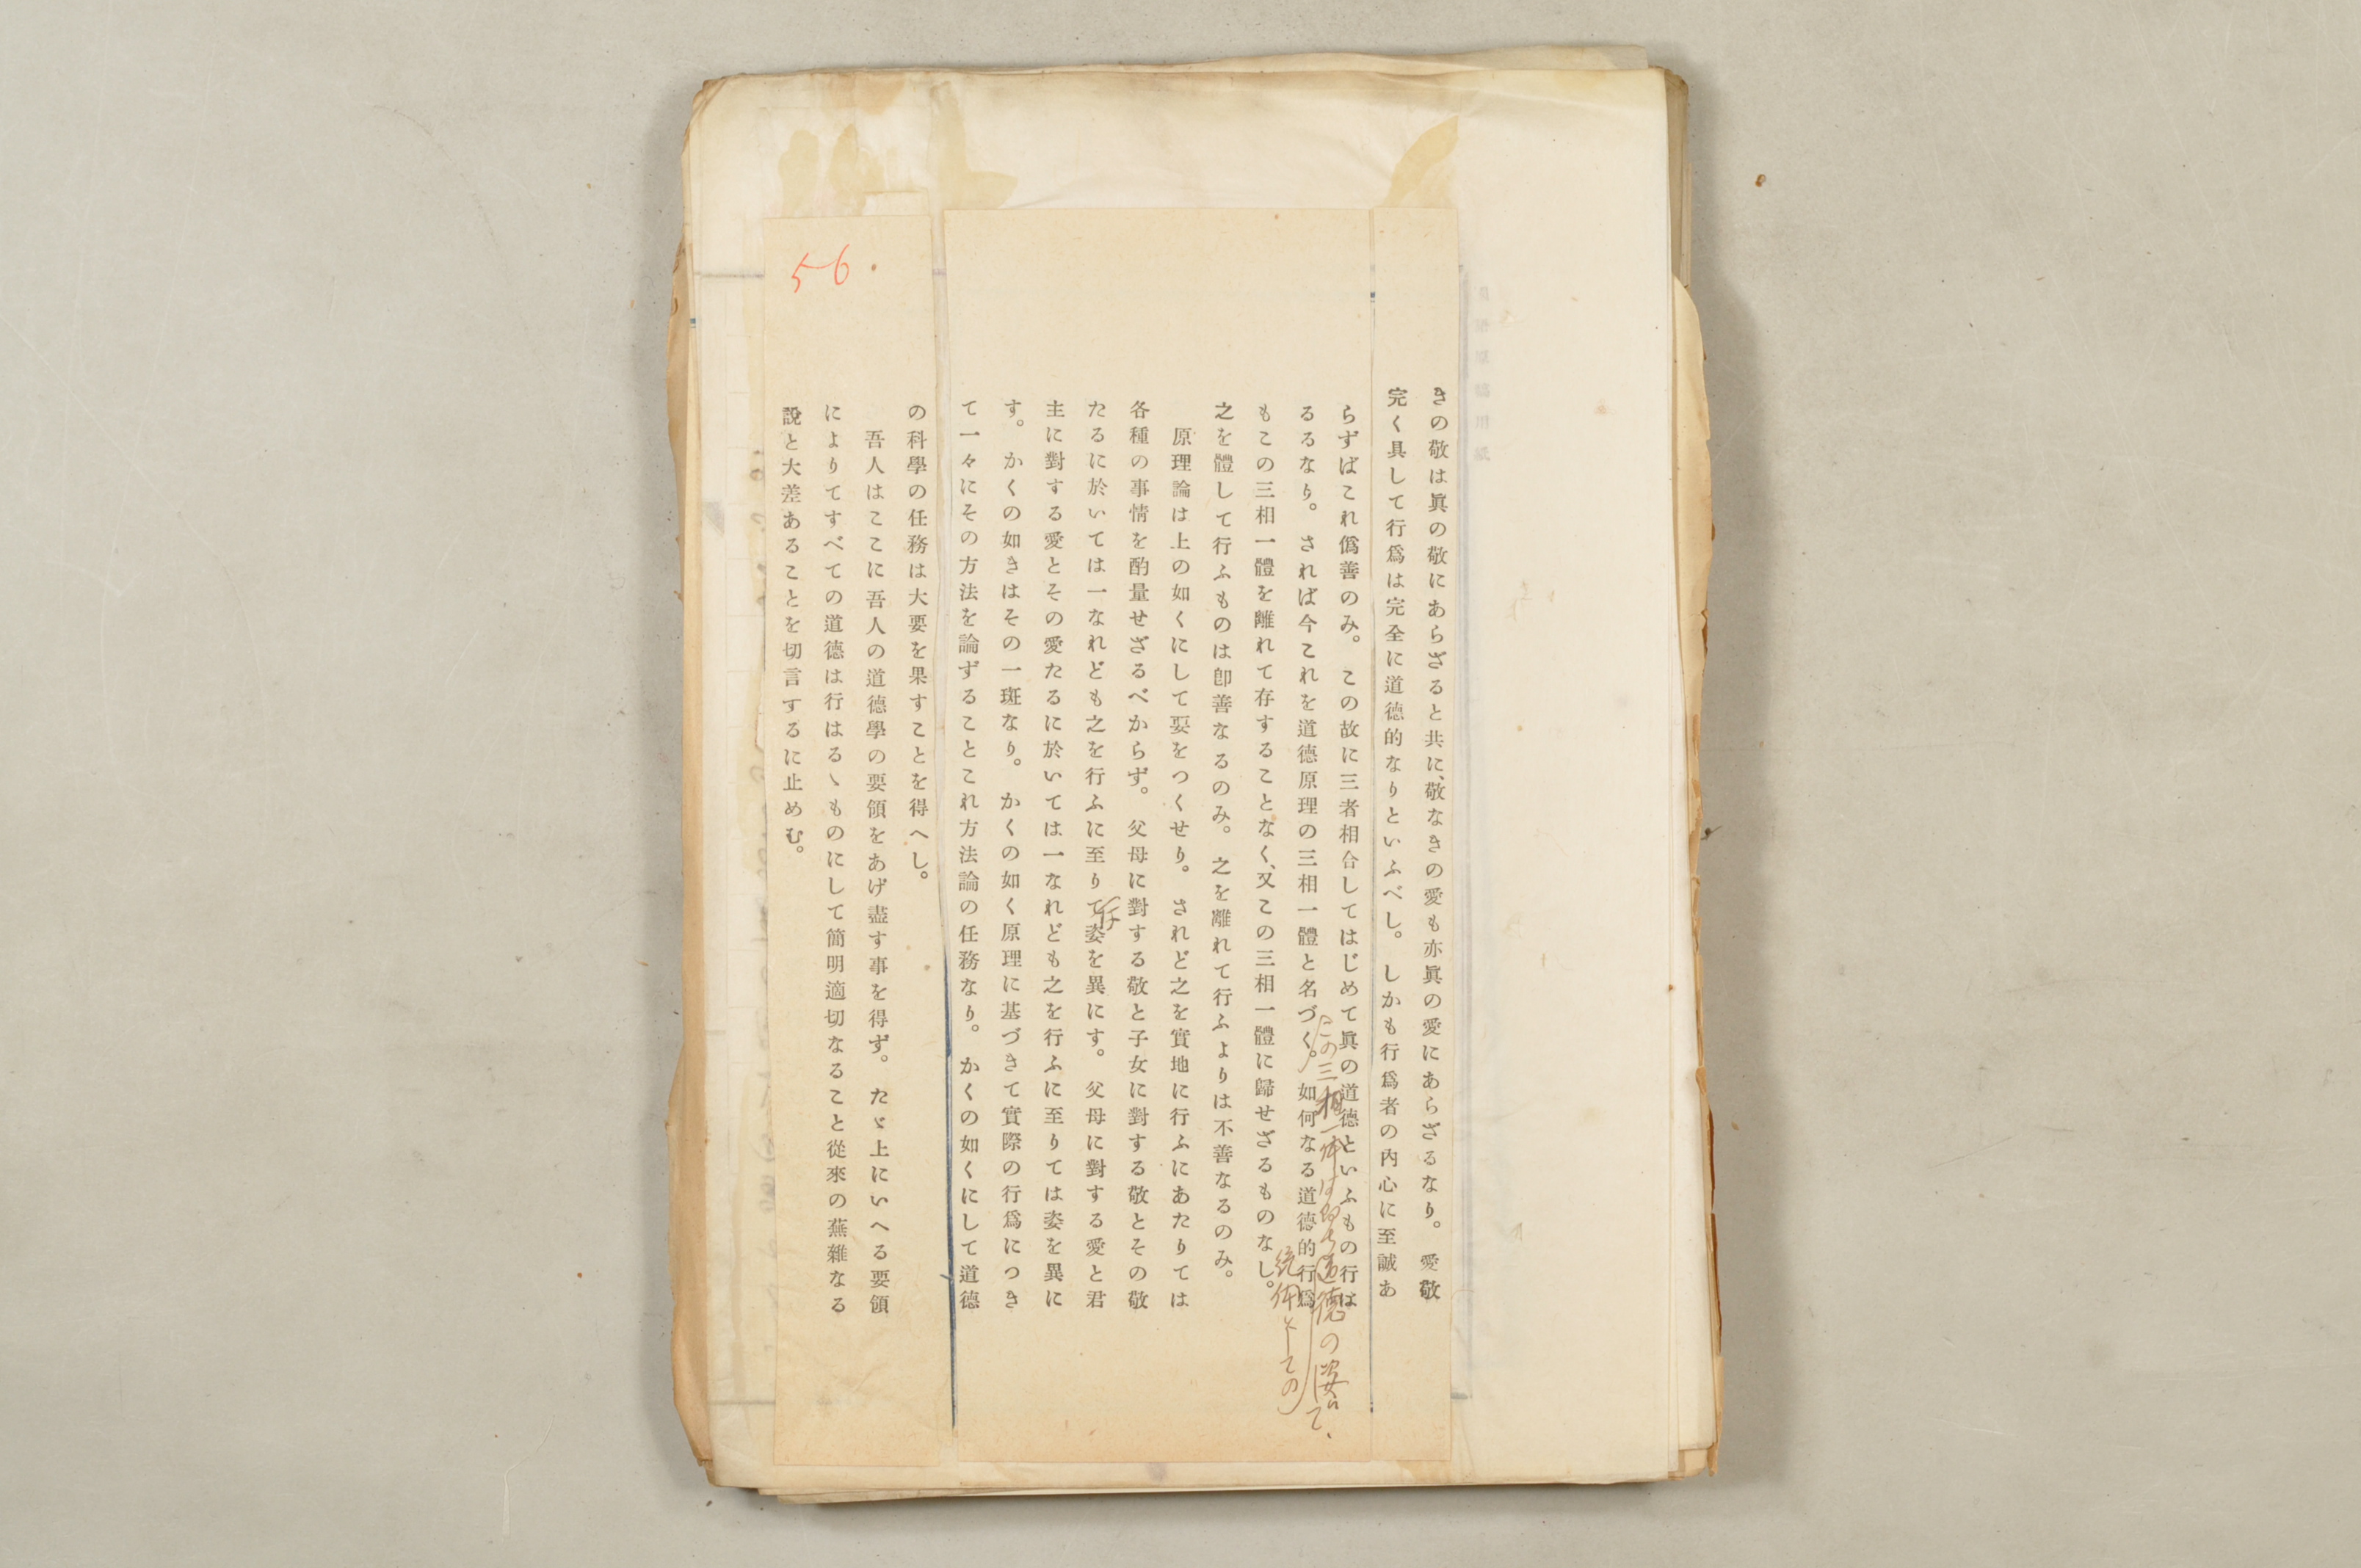 きの敬は眞の敬にあらざると共に、敬なきの愛も亦眞の愛にあらざるなり。 愛敬
完く具して行爲は完全に道德的なりといふべし。 しかも行爲者の內心に至誠あ
らずばこれ僞善のみ。 この故に三者相合してはじめて眞の道德といふもの行は
この三相一体は即ち道德の姿にて、
るるなり。 されば今これを道德原理の三相一體と名づく。如何なる道德的行爲
統体としての
もこの三相一體を離れて存することなく、又この三相一體に歸せざるものなし。
之を體して行ふものは卽善なるのみ。 之を離れて行ふよりは不善なるのみ。
原理論は上の如くにして要をつくせり。 されど之を實地に行ふにあたりては
各種の事情を酌量せざるべからず。 父母に對する敬と子女に對する敬とその敬
は
たるに於いては一なれども之を行ふに至りて姿を異にす。 父母に對する愛と君
主に對する愛とその愛たるに於いては一なれども之を行ふに至りては姿を異に
す。 かくの如きはその一斑なり。 かくの如く原理に基づきて實際の行爲につき
て一々にその方法を論ずることこれ方法論の任務なり。 かくの如くにして道德
の科學の任務は大要を果すことを得へし。
吾人はここに吾人の道德學の要領をあげ盡す事を得ず。 たゞ上にいへる要領
によりてすべての道德は行はるヽものにして簡明適切なること從來の蕪雜なる
說と大差あることを切言するに止めむ。
56